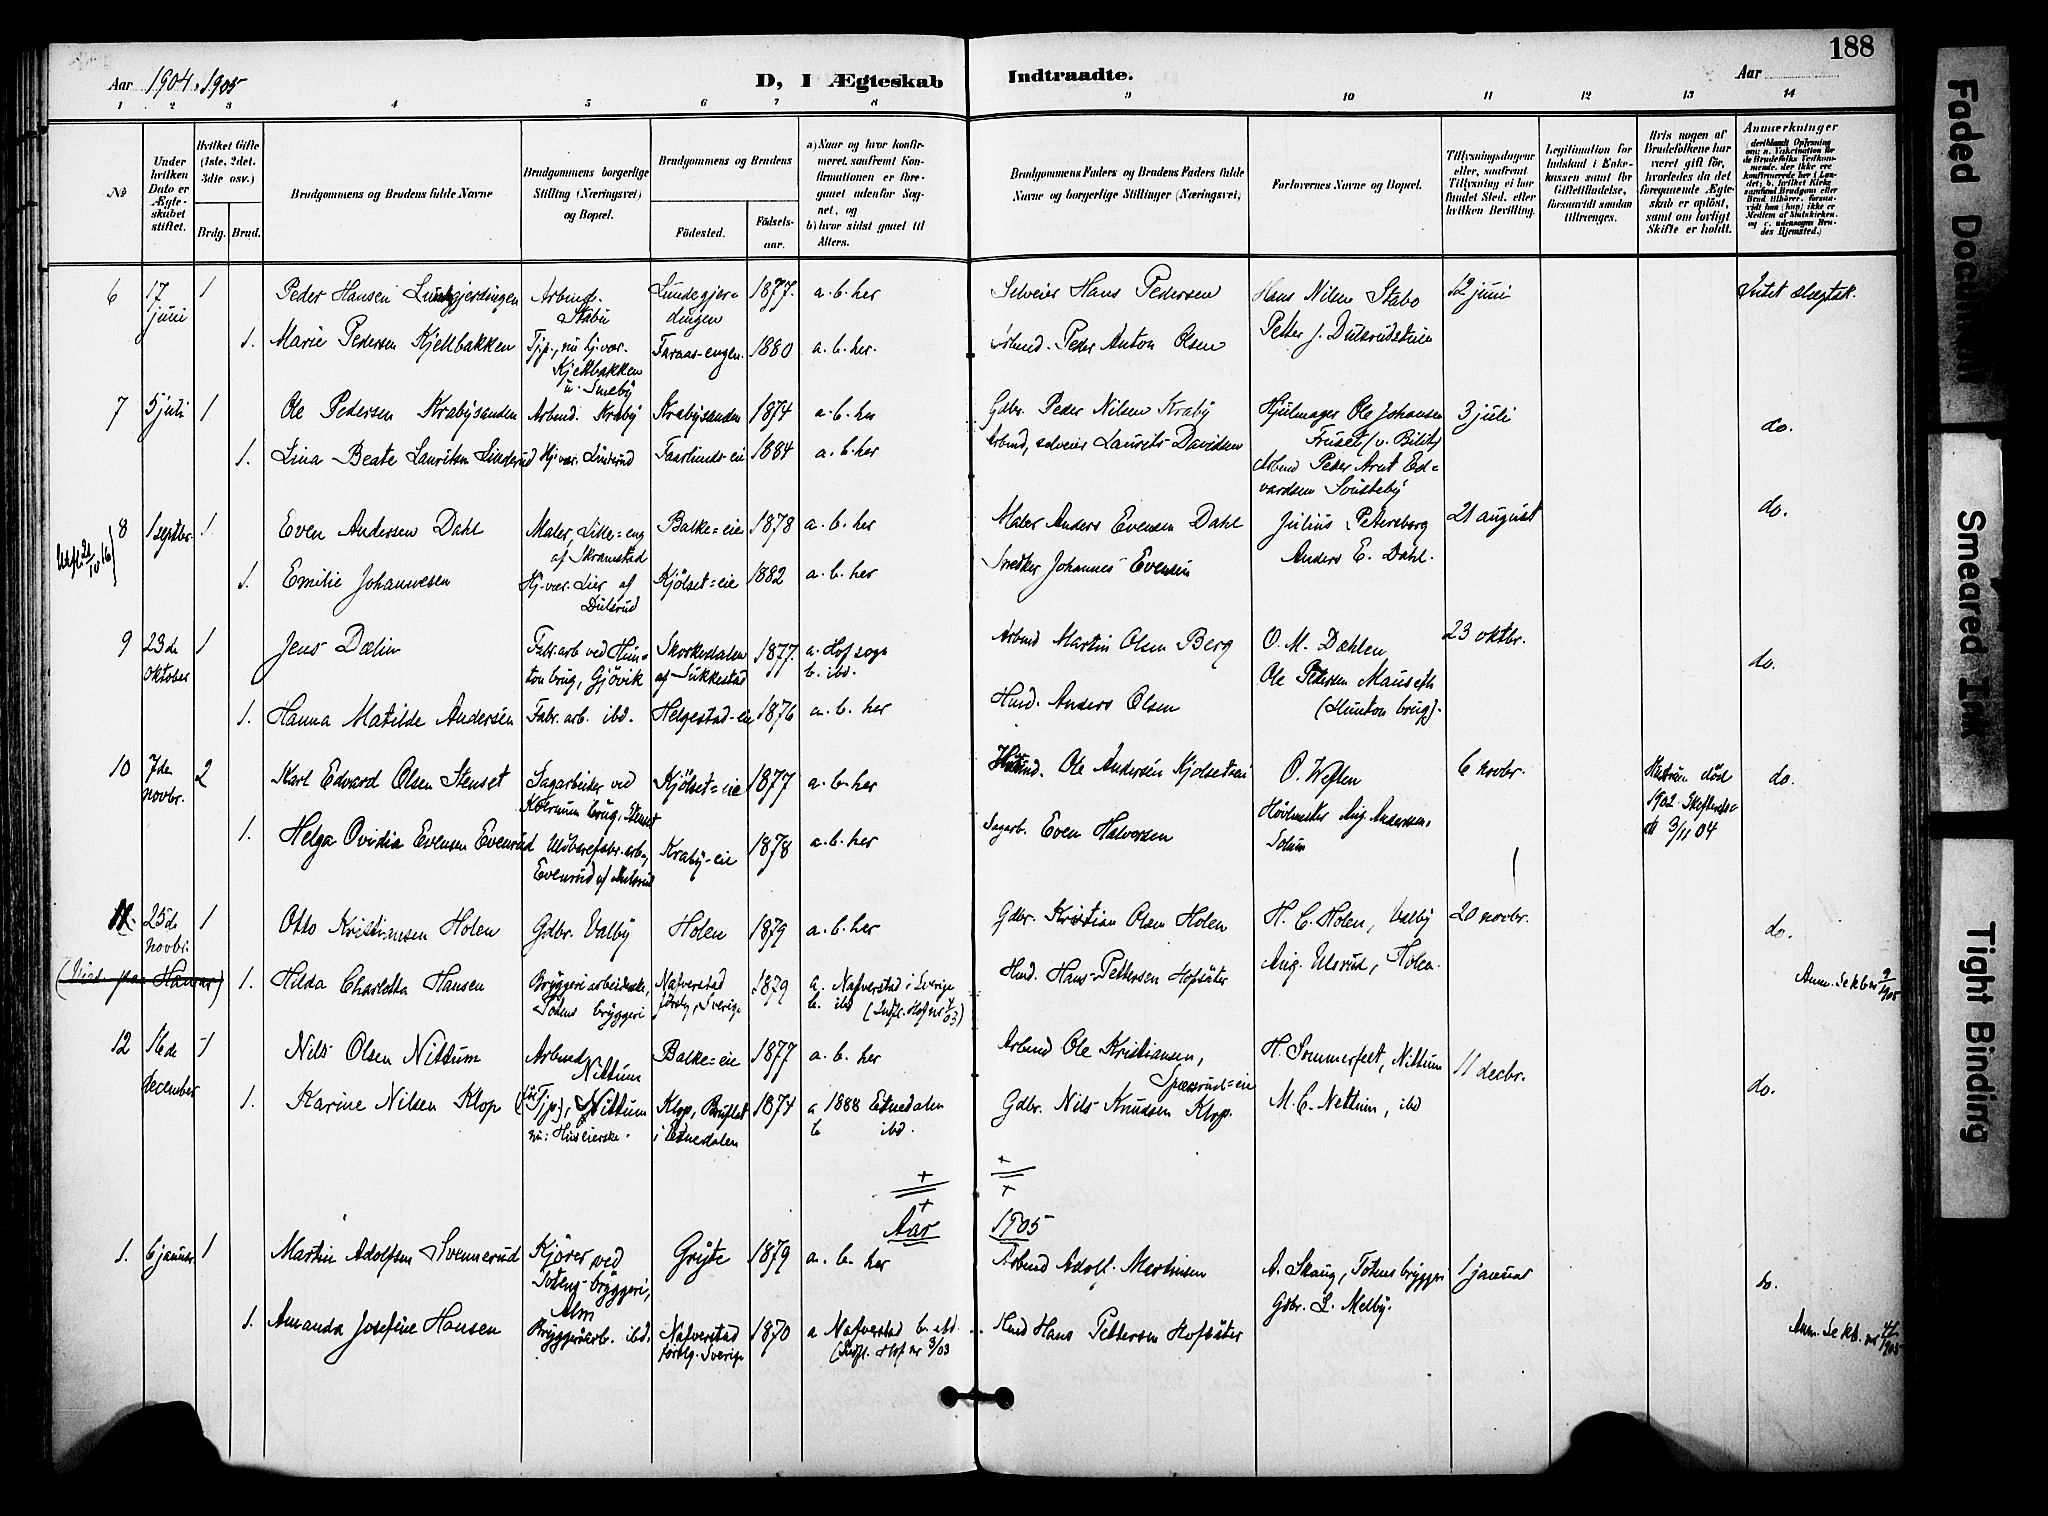 188
Aar 1904, 1905 D, I Ægteskab Indtraadte. Aar
1 2 3 4 5 6 7 8 9 10 11 12 13 14
No
Under hvilken Dato er Ægteskabet stiftet.
Hvilket Gifte (1ste, 2det, 3die osv.)
Brdg. Brud.
Brudgommens og Brudens fulde Navne
Brudgommens borgerlige Stilling (Næringsvei) og Bopæl.
Brudgommens og Brudens
Födested. Födselsaar.
a) Naar og hvor konfirmeret, saafremt Konfirmationen er foregaaet udenfor Sognet, og
b) hvor sidst gaaet til Alters.
Brudgommens Faders og Brudens Faders fulde Navne og borgerlige Stillinger (Næringsvei),
Forlovernes Navne og Bopæl.
Tillysningsdagene eller, saafremt Tillysning ei har fundet Sted, efter hvilken Bevilling.
Legitimation for Indskud i Enkekassen samt for Giftetilladelse, forsaavidt saadan tiltrænges.
Hvis nogen af Brudefolkene har været gift för, hvorledes da det foregaaende Ægteskab er oplöst, samt om lovligt Skifte er holdt.
Anmerkninger
6 17 juni 1 Peder Hansen Lundgjerdingen Arbmd. Stabu Lundegjerdingen 1877. a. b. her Selveier Hans Pedersen Hans Nilsen Stabo 12 juni Intet slegtsk.
1. Marie Pedersen Kjeltbakken Tjp., nu hj. vær. Kjeltbakken u. Smeby Faraas-engen 1880 a. b. her. Arbmd. Peder Anton Olsen Petter J. Dulsrudstuen
7 5 juli 1. Ole Pedersen Krabysanden Arbmd. Kraby Krabysanden 1874 a. b. her Gdbr. Peder Nilsen Kraby Hjulmager Ole Johansen Fruset 3 juli do.
1. Lina Beate Lauritsen Linderud Hj. vær. Linderud Faarlunds-eie 1884 a. b. her Arbmd, selveier Laurits Davidsen Arbmd Peder Arnt Edvardsen Sousteby
8 1 septbr. 1. Even Andersen Dahl Maler, Lille-eng af Skramstad Balke-eie 1878 a. b. her Maler Anders Evensen Dahl Julius Petersborg 21 august do.
1. Emilie Johannesen Hj. vær. Lier af Dulsrud Kjölset-eie 1882 a. b. her Snedker Johannes Evensen Anders E. Dahl.
9 23de oktober 1 Jens Dælin Fabr. arb ved Hunton brug, Gjövik Skorkedalen af Sukkestad 1877. a. Hof sogn b. ibd. Arbmd Martin Olsen Berg O. M. Dæhlen 23 oktbr. do.
1. Hanna Matilde Andersen Fabr. arb. ibd. Helgestad-eie 1876 a. b. her Husd. Anders Olsen Ole Pedersen Mauseth (Hunton brug).
10 7de novbr. 2 Karl Edvard Olsen Stenset Sagarbeider ved brug, Stenset Kjölset-eie 1877 a. b. her Ole Andersen Kjolseteie O. Weflen 6 novbr. Hustruen död 1902. 3/11 04 do.
1. Helga Ovidia Evensen Evenrud Uldvarefabr. arb., Evenrud af Kraby-eie 1878 a. b. her Sagarb. Even Halversen Aug. Andersen, Solum
11. 25de novbr. 1 Otto Kristiansen Holen Gdbr. Valby Holen 1879 a. b. her Gdbr. Kristian Olsen Holen H. C. Holen, Valby 20 novbr. do.
1. Hilda Charlotta Hansen Bryggeriarbeiderske, Totens bryggeri Nafverstad förslg, Sverige 1879 a. Nafverstad i Sverige b. ibd (Indfl. Hof nr /03) Husd. Hans Pettersen Hofsäter Aug. Ulsrud, Holen. Anm. Sekb nr 2/1905
12 16de december 1 Nils Olsen Nittum Arbmd Nittum Balke-eie 1877 a. b. her Arbmd Ole Kristiansen, Spæsrud-eie H. Sommerfelt, Nittum 11 decbr. do.
1. Karine Nilsen Klop Tjp), Nittum nu: Huseierske. Klop, Bruflat i Etnedalen 1874 a 1888 Etnedalen b ibd. Gdbr. Nils Knudsen Klop. M. C. Nettum, ibd
Aar 1905
1. 6 januar 1 Martin Adolfsen Svennerud Kjörer ved Totens bryggeri, Alm Gryte 1879 a. b. her Arbmd Adolf Martinsen A. Skaug, Totens bryggeri 1 januar do.
1. Amanda Josefine Hansen Bryggeriarb. ibd. Nafverstad förslg. Sverige 1870 a Nafverstad b. ibd. (Indfl. Hof nr 3/03 Husd Hans Pettersen Hofsäter Gdbr. L. Melby. Anm. Sekb. nr 1905
Faded Document
Smeared Ink
Tight Binding